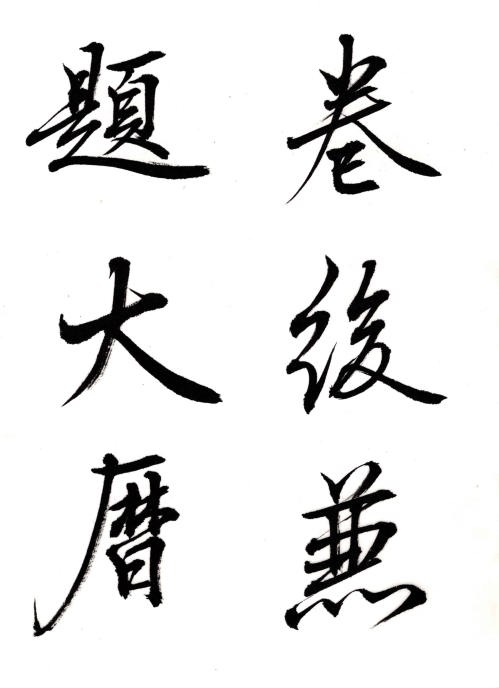 卷後兼
題大曆